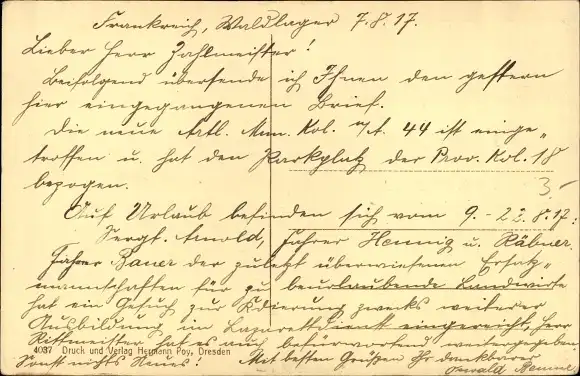 Frankreich, Waldlager 7.8.17.
Lieber Herr Zahlmeister!
Beifolgend übersende ich Ihnen den gestern
hier eingegangenen Brief.
Die neue Artl. Mun. Kol. 44 ist einge„
troffen u. hat den Parkplatz der Prov. Kol. 18
bezogen.
3-
Auf Urlaub befinden sich vom 9.-22.8.17:
Sergt. Arnold, Fahrer Hennig u. Räbner.
Fahrer Bauer der zuletzt überwiesenen Ersatz„
mannschaften für zu beurlaubende Landwirte
hat ein Gesuch zur zwecks weiterer
Ausbildung im Lazarettdienst eingereicht, Herr
Rittmeister hat es auch befürwortend weitergegeben
Sonst nichts Neues! Mit besten Grüßen Ihr dankbarer
Oswald
4037 Druck und Verlag Hermann Poy, Dresden